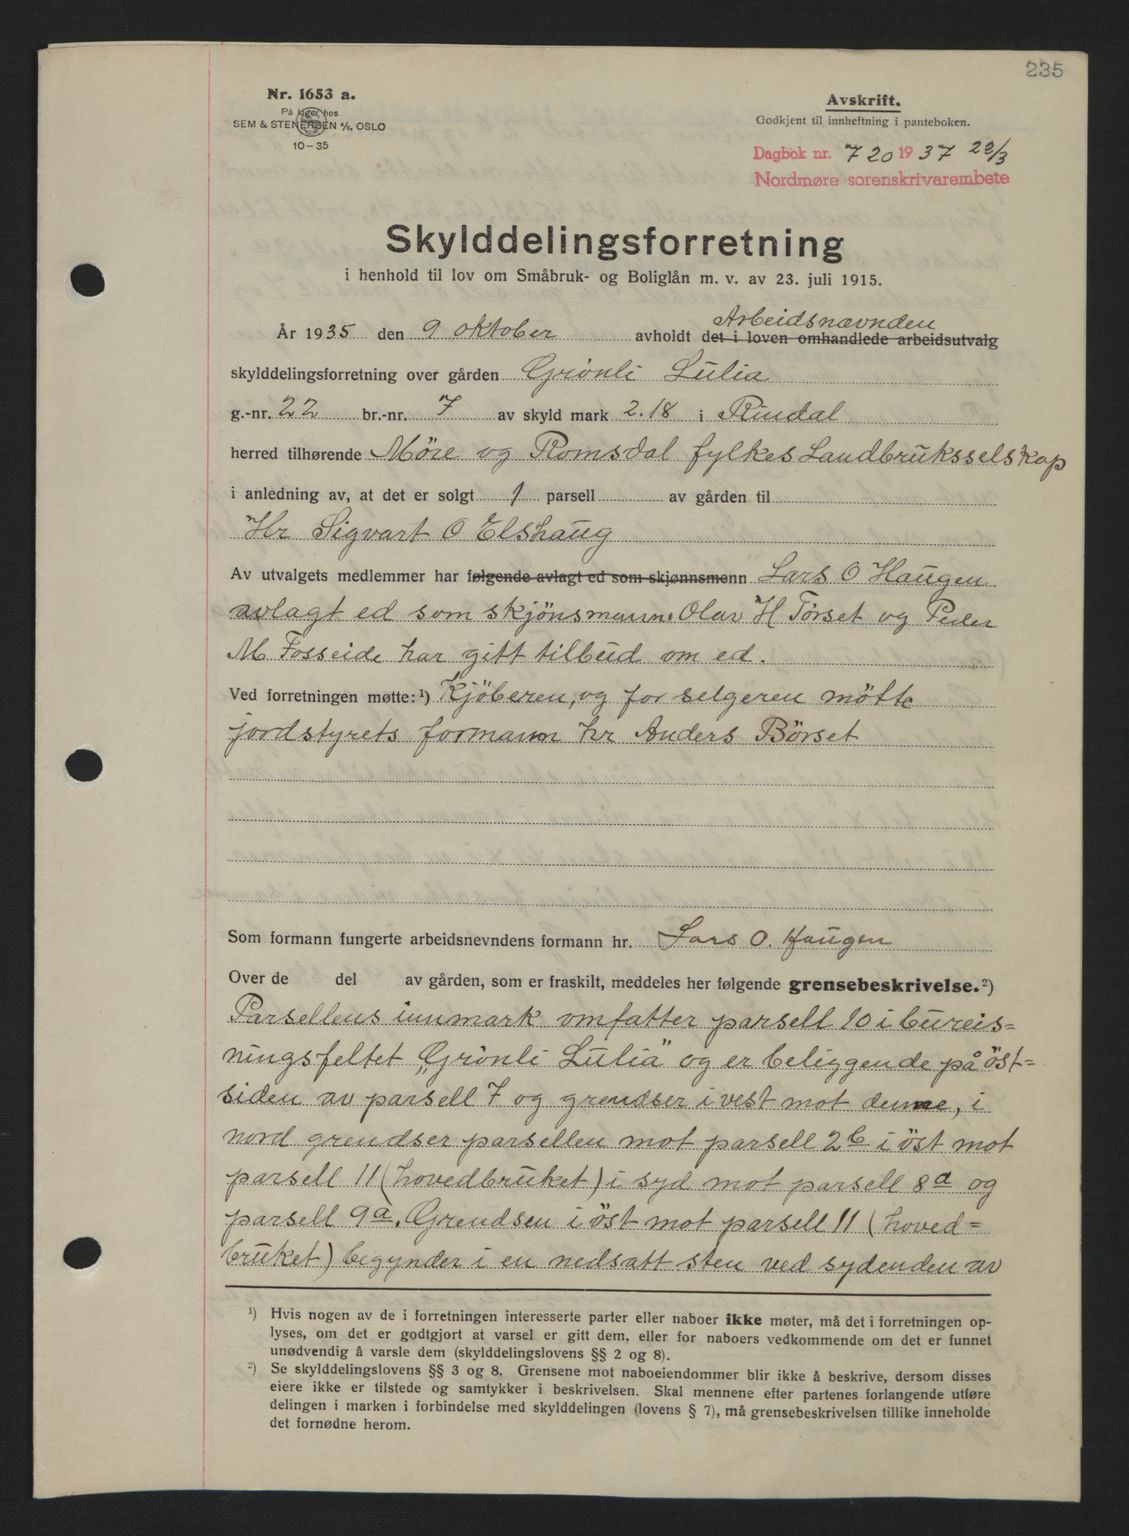 235
Nr. 1653 a.
På lager hos
SEM & STENERSEN A/S, OSLO
10-35
Avskrift.
Godkjent til innheftning i panteboken.
Dagbok nr. 720 1937 22/3
Nordmøre sorenskrivarembete
Skylddelingsforretning
i henhold til lov om Småbruk- og Boliglån m. v. av 23. juli 1915.
Arbeidsnævnden
År 1935 den 9 oktober avholdt det i loven omhandlede arbeidsutvalg
skylddelingsforretning over gården Grönli Lülia
g.-nr. 22 br.-nr. 7 av skyld mark 2.18 i Rindal
herred tilhørende Möre og Romsdal fylkes Landbruksselskap
i anledning av, at det er solgt 1 parsell av gården til
Hr Sigvart O Elshaug
Av utvalgets medlemmer har følgende avlagt ed som skjønnsmenn Lars O Haugen
avlagt ed som skjönsmann. Olav H Törset og Peder
M Fosseide har gitt tilbud om ed.
Ved forretningen møtte: ¹) Kjöberen, og for selgeren mötte
jordstyrets formann hr Anders Börset
Som formann fungerte arbeidsnevndens formann hr. Lars O. Haugen
Over de del av gården, som er fraskilt, meddeles her følgende grensebeskrivelse. ²)
Parsellens innmark omfatter parsell 10 i bureis=
ningsfeltet „Grönli Lülia" og er beliggende på öst-
siden av parsell 7 og grendser i vest mot denne, i
nord grendser parsellen mot parsell 2b i öst mot
parsell 11 (hovedbruket) i syd mot parsell 8a og
parsell 9a. Grendsen i öst mot parsell 11 (hoved=
bruket) begynder i en nedsatt sten ved sydenden av
¹) Hvis nogen av de i forretningen interesserte parter eller naboer ikke møter, må det i forretningen op-
lyses, om det er godtgjort at varsel er gitt dem, eller for naboers vedkommende om det er funnet
unødvendig å varsle dem (skylddelingslovens §§ 2 og 8).
²) Se skylddelingslovens §§ 3 og 8. Grensene mot naboeiendommer blir ikke å beskrive, dersom disses
eiere ikke er tilstede og samtykker i beskrivelsen. Skal mennene efter partenes forlangende utføre
delingen i marken i forbindelse med skylddelingen (lovens § 7), må grensebeskrivelsen tillike inneholde
det fornødne herom.